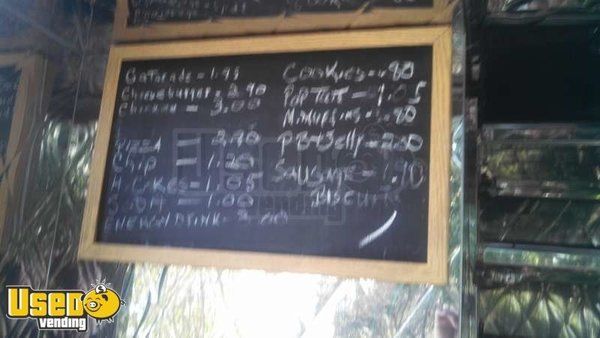 Gatorade = 1.95
Cheeseburger = 2.90
Chicken = 3.00
Pizza = 2.90
Chip = 1.20
H.Cakes = 1.05
Soda = 1.00
Energy Drink
Cookies = .80
Pop Tart = 1.05
Muffins = .80
PB+Jelly = 2.00
Sausage
Biscuit
USED
vending